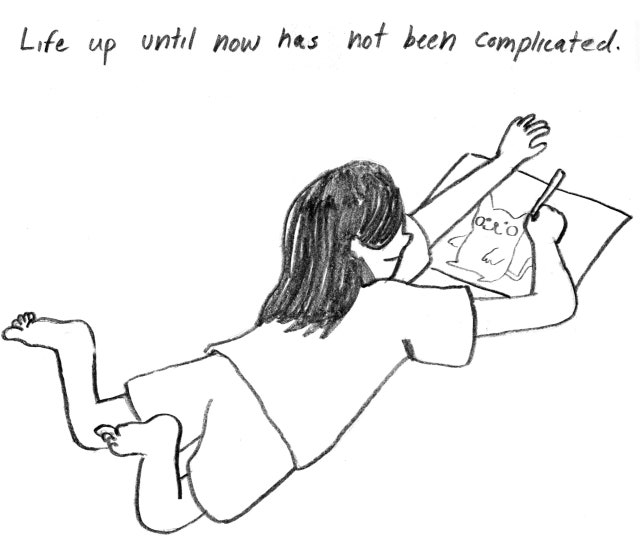 Life up until now has not been complicated.